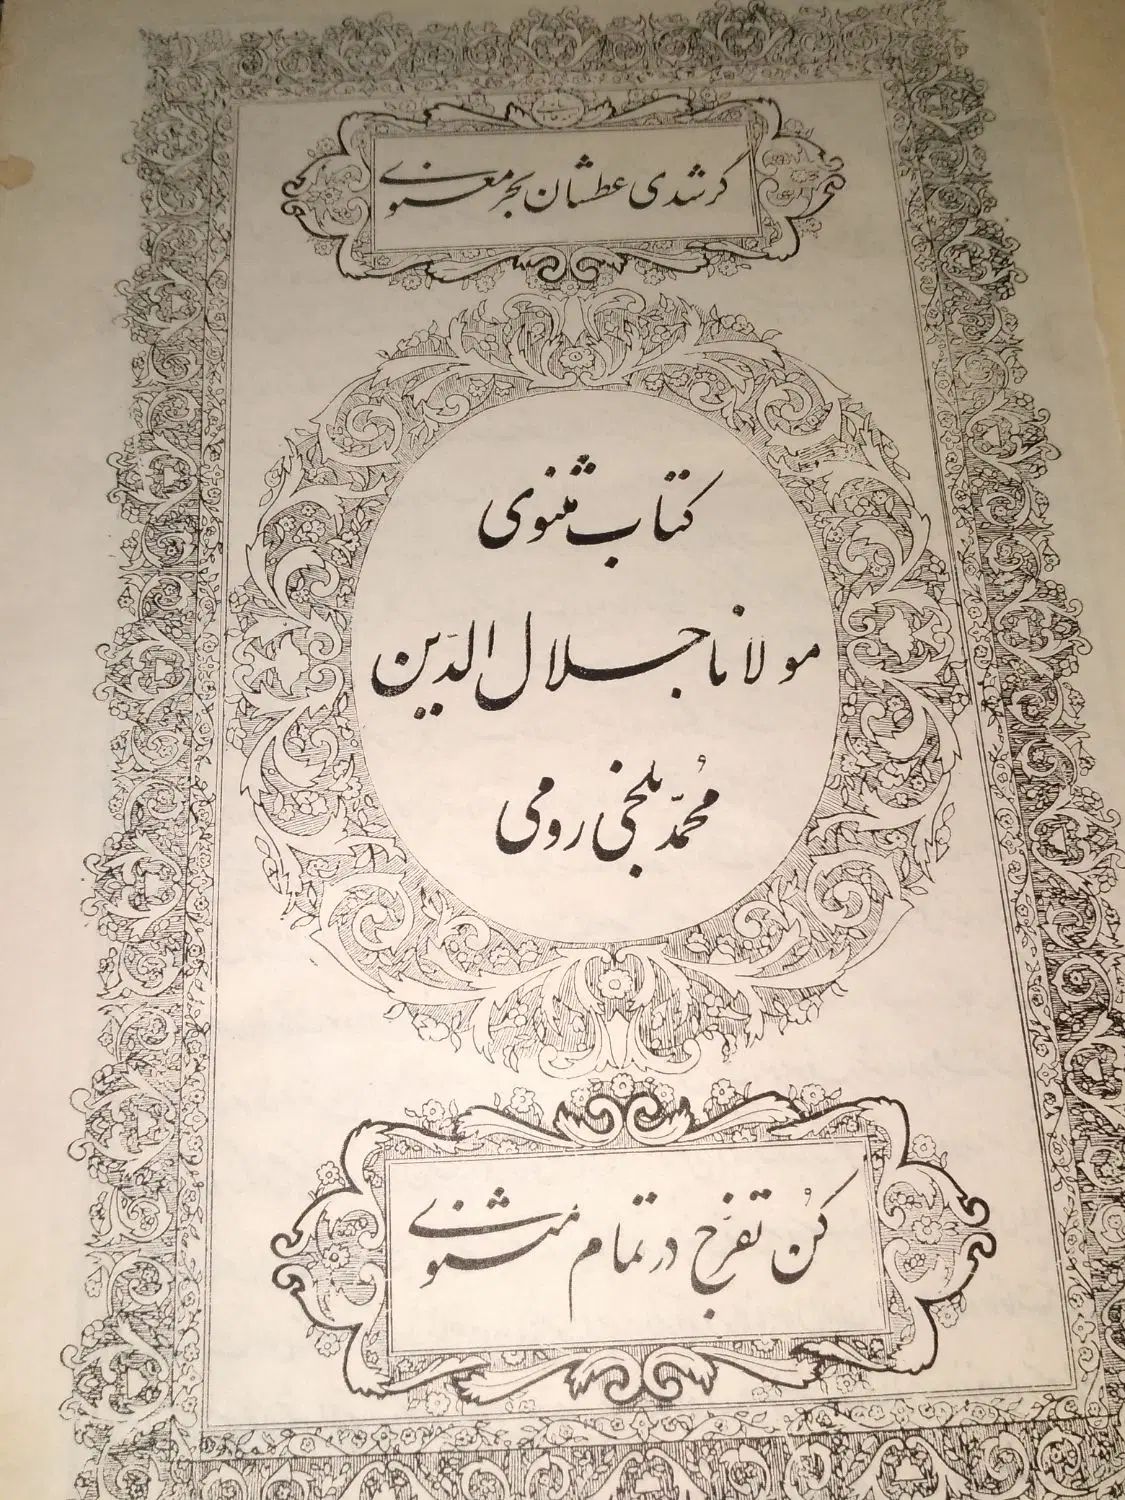 گر شدی عطشان بحر معنوی
کتاب مثنوی
مولانا جلال الدّین
محُمّد بلخی رومی
کُن تفرّج در تمام مثنوی